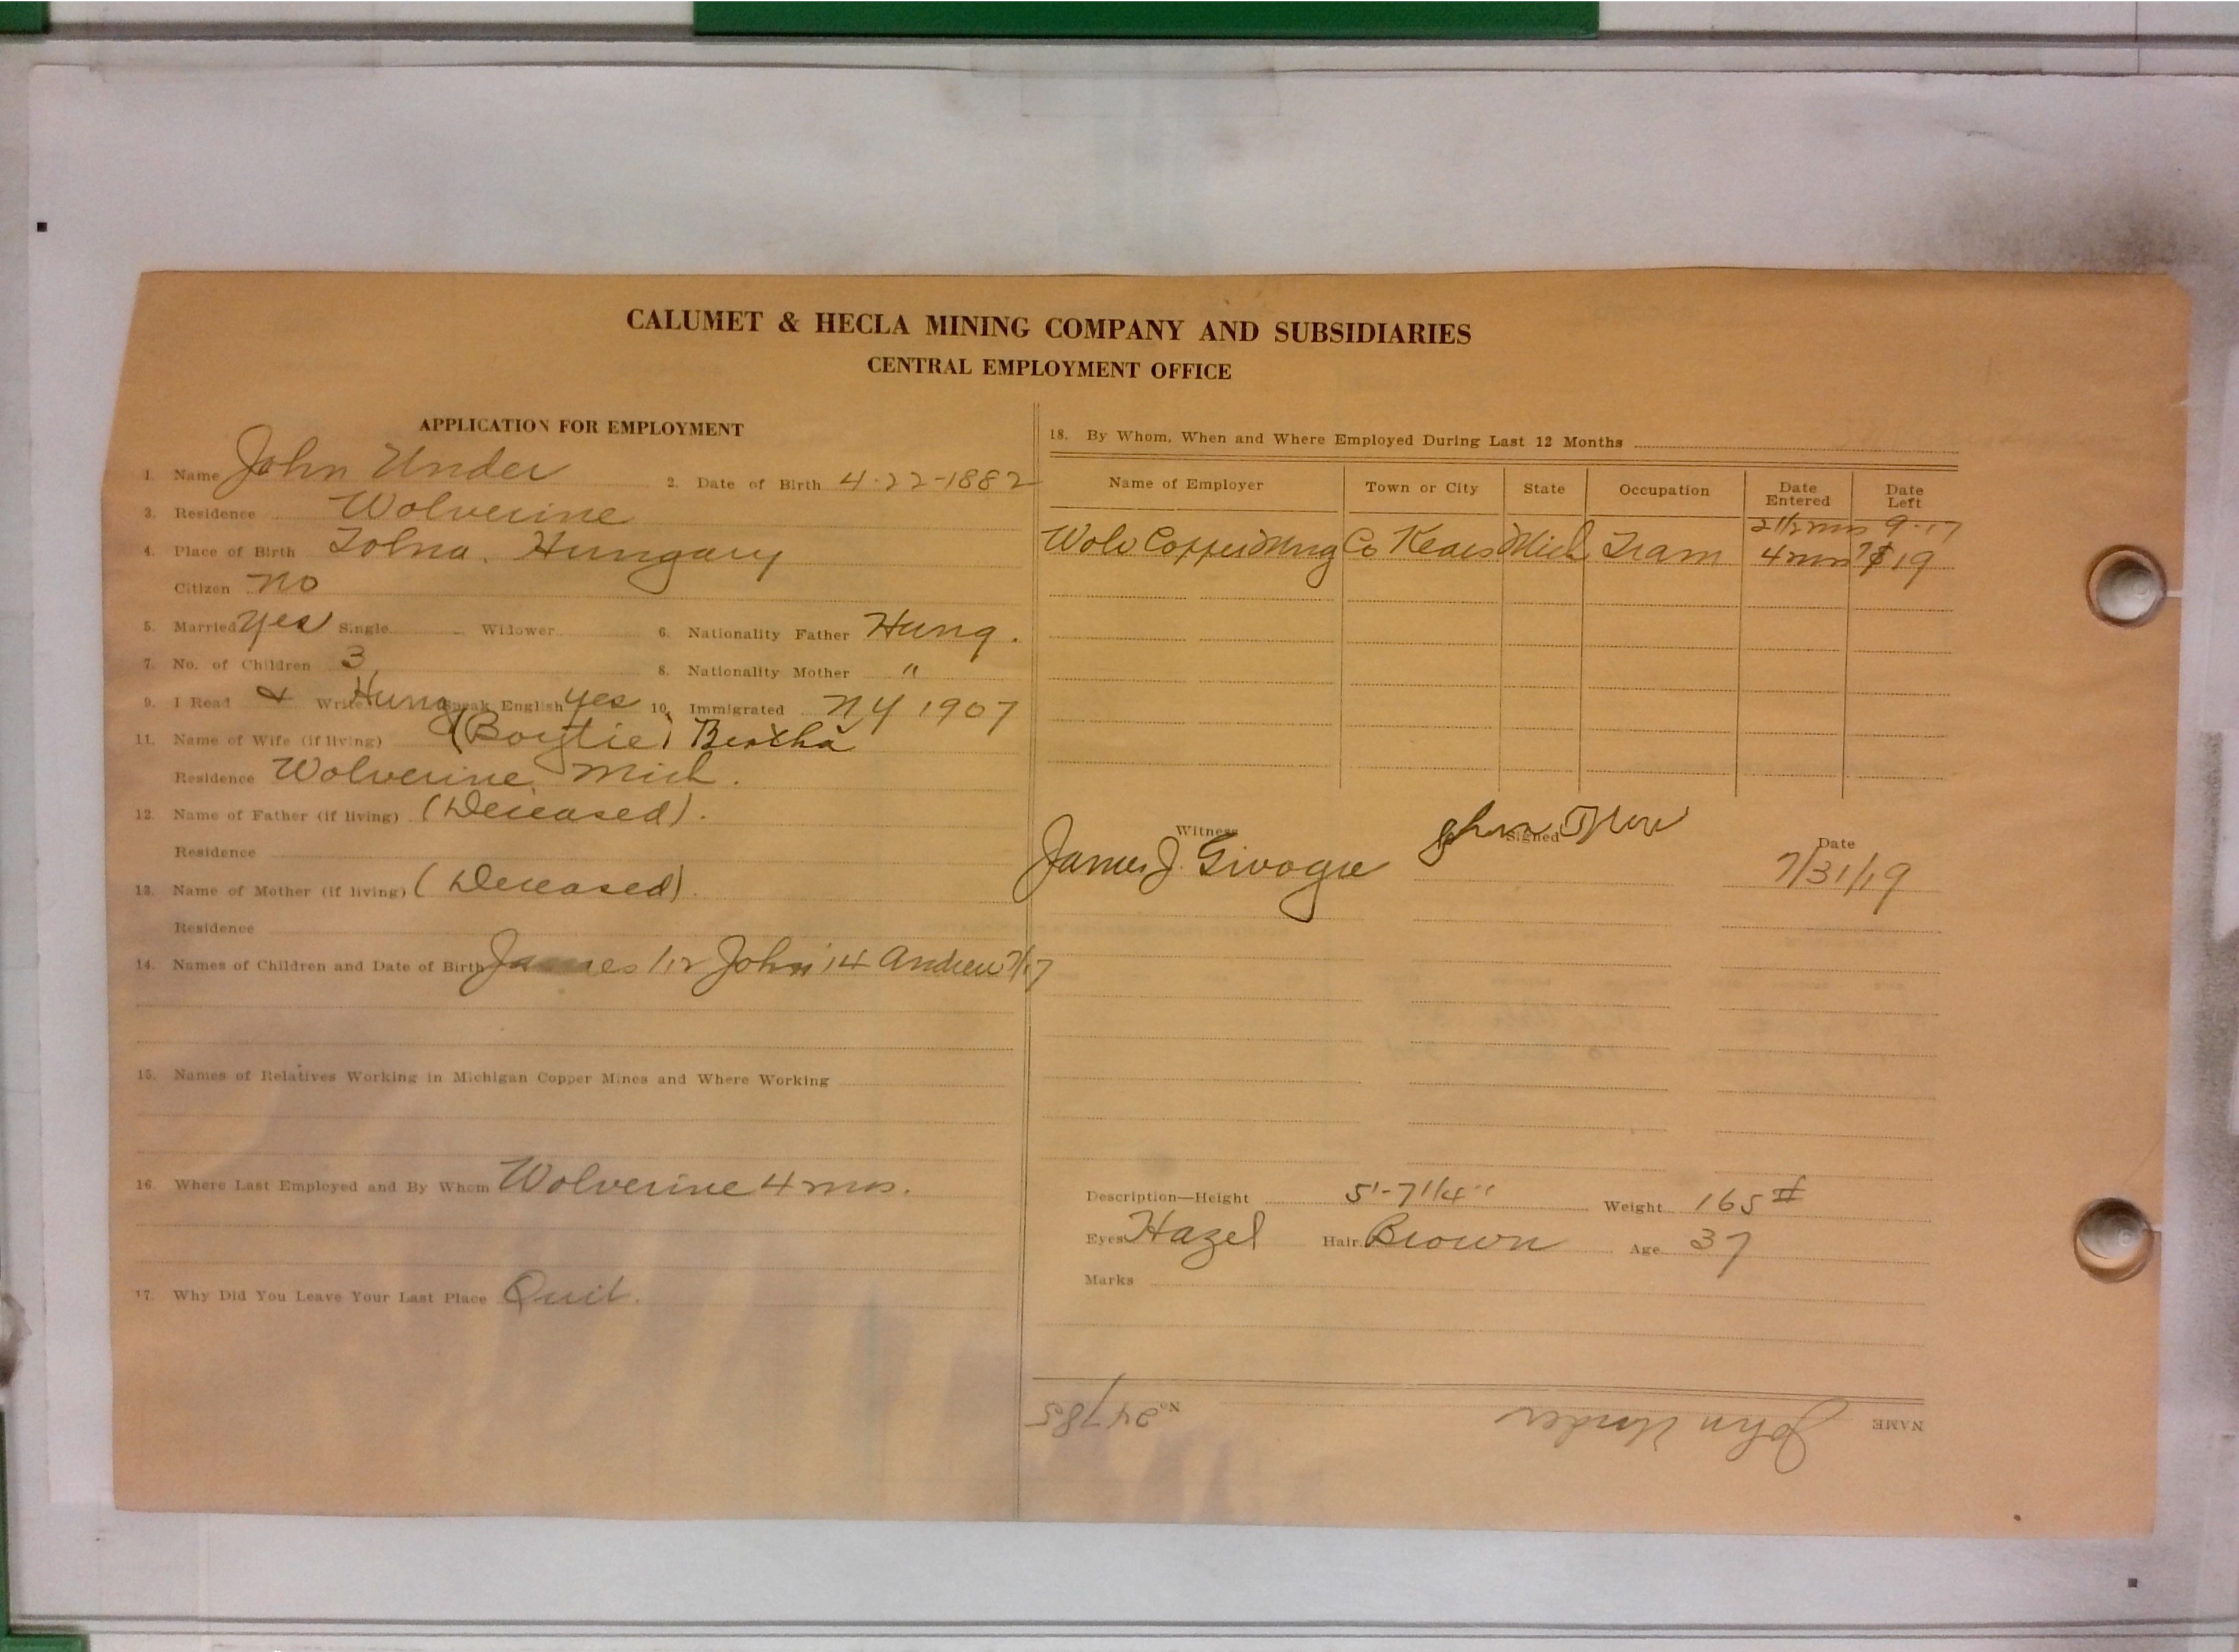 CALUMET & HECLA MINING COMPANY AND SUBSIDIARIES
CENTRAL EMPLOYMENT OFFICE
APPLICATION FOR EMPLOYMENT
1. Name John Under 2. Date of Birth 4-22-1882
3. Residence Wolverine
4. Place of Birth Tolna, Hungary
Citizen no
5. Married yes Single Widower 6. Nationality Father Hung.
7. No. of Children 3 8. Nationality Mother "
9. I Read & Write Hung Speak English yes 10. Immigrated NY 1907
11. Name of Wife (if living) Bertha
Residence Wolverine, Mich.
12. Name of Father (if living) (Deceased).
Residence
13. Name of Mother (if living) (Deceased).
Residence
14. Names of Children and Date of Birth James 1/12 John 14 Andrew 7/17
15. Names of Relatives Working in Michigan Copper Mines and Where Working
16. Where Last Employed and By Whom Wolverine 4 mos.
17. Why Did You Leave Your Last Place Quit.
18. By Whom, When and Where Employed During Last 12 Months
Name of Employer Town or City State Occupation Date Entered Date Left
2 1/2 mos 9-17
Wolv Copper Mng Co Kears Mich Tram 4 mos 19
Witness Signed Date
James J. John 7/31/19
Description—Height 5'-7 1/4" Weight 165#
Eyes Hazel Hair Brown Age 37
Marks
NAME John Under No. 24785